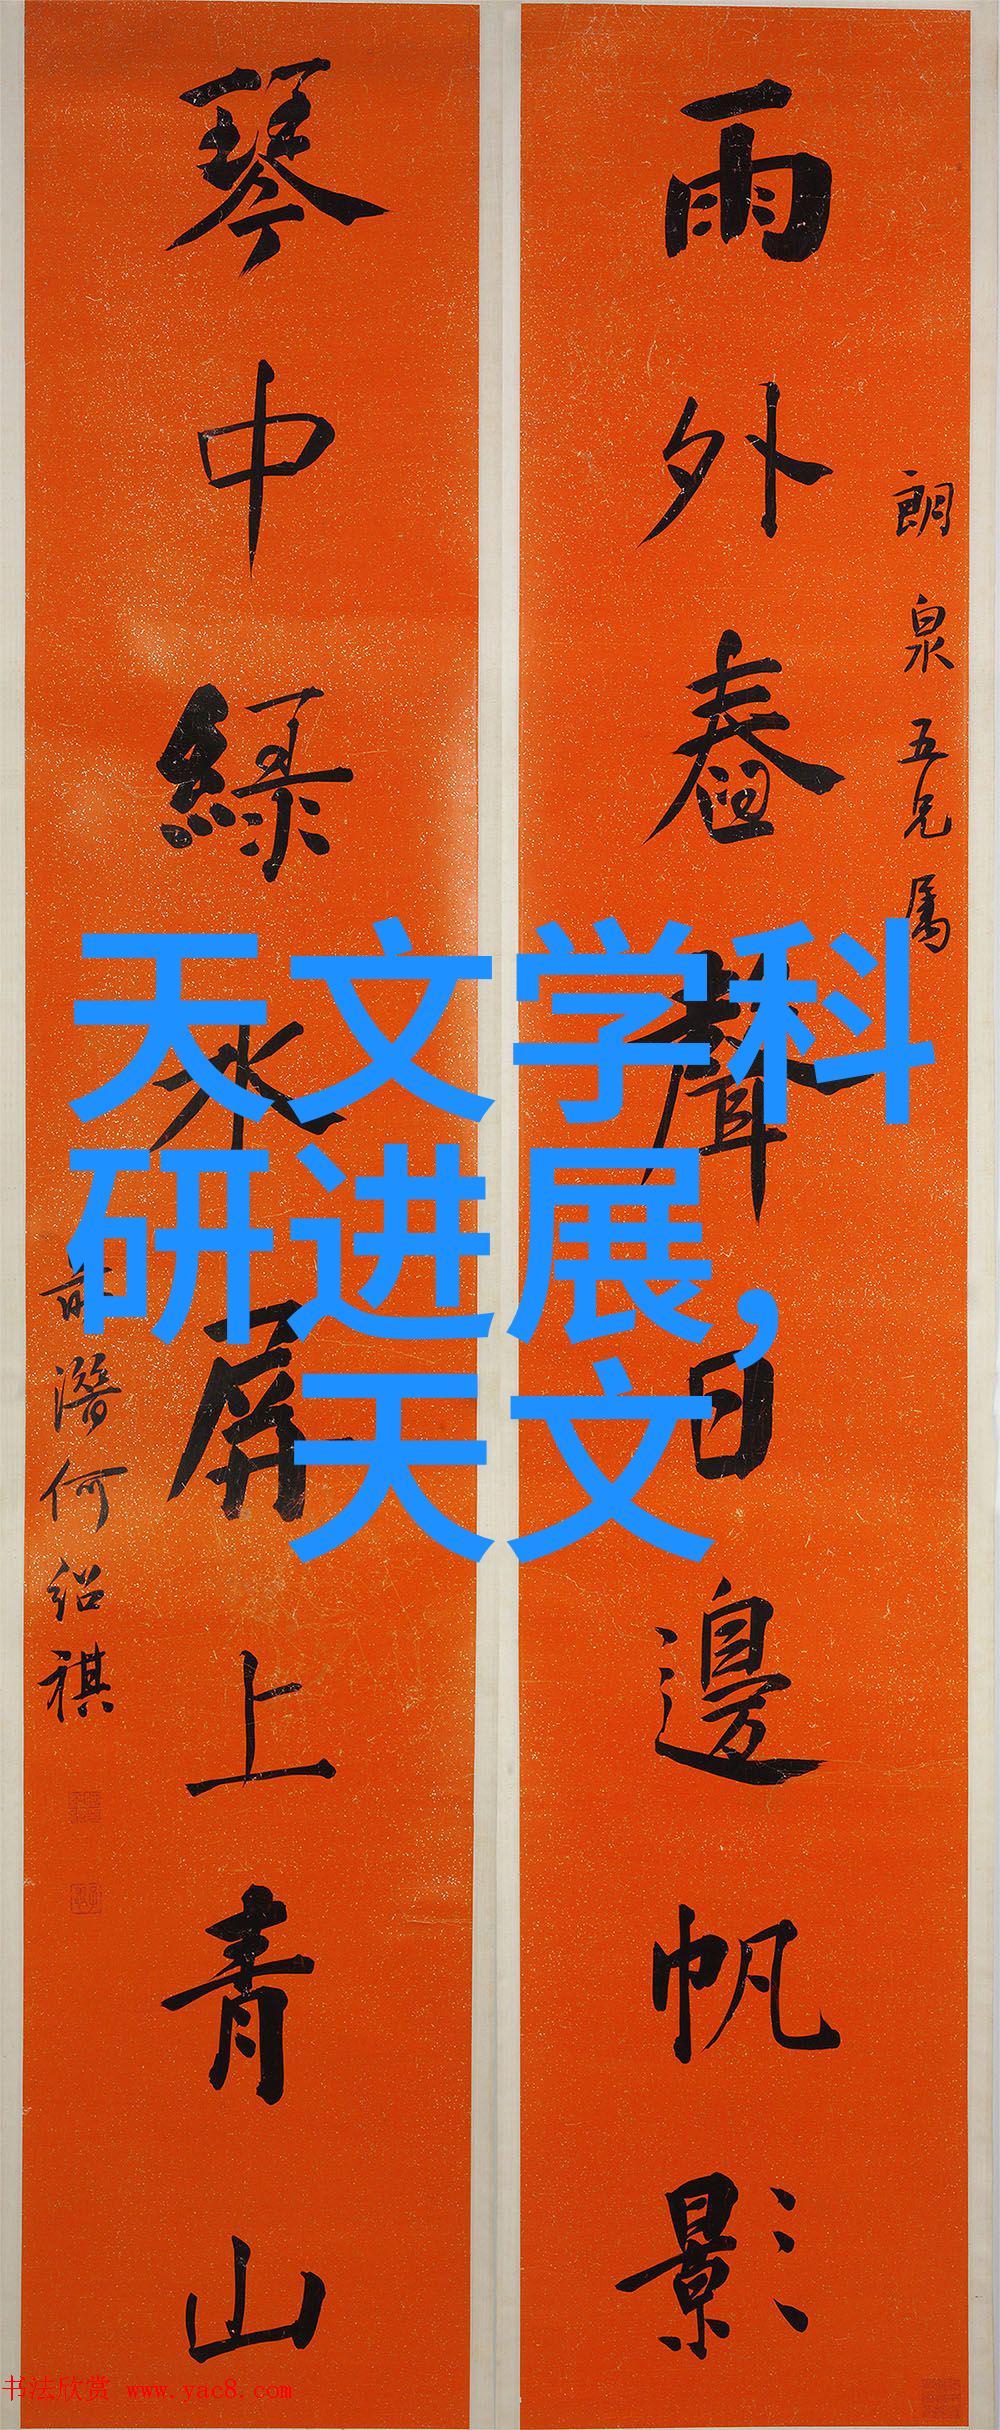 朗泉五兄属
雨外舂聲日邊帆影
琴中綠水屏上青山
潜何紹祺
天文学科
研进展,
天文
书法欣赏 www.yac8.com